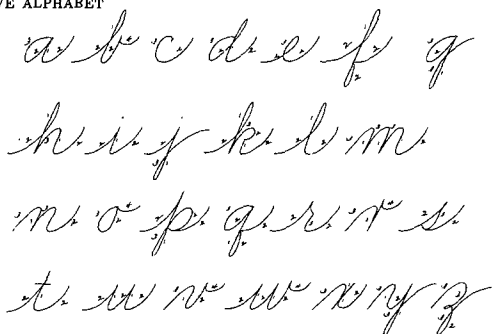 VE ALPHABET
a b c d e f g
h i j k l m
n o p q r r s
t u v w x y z